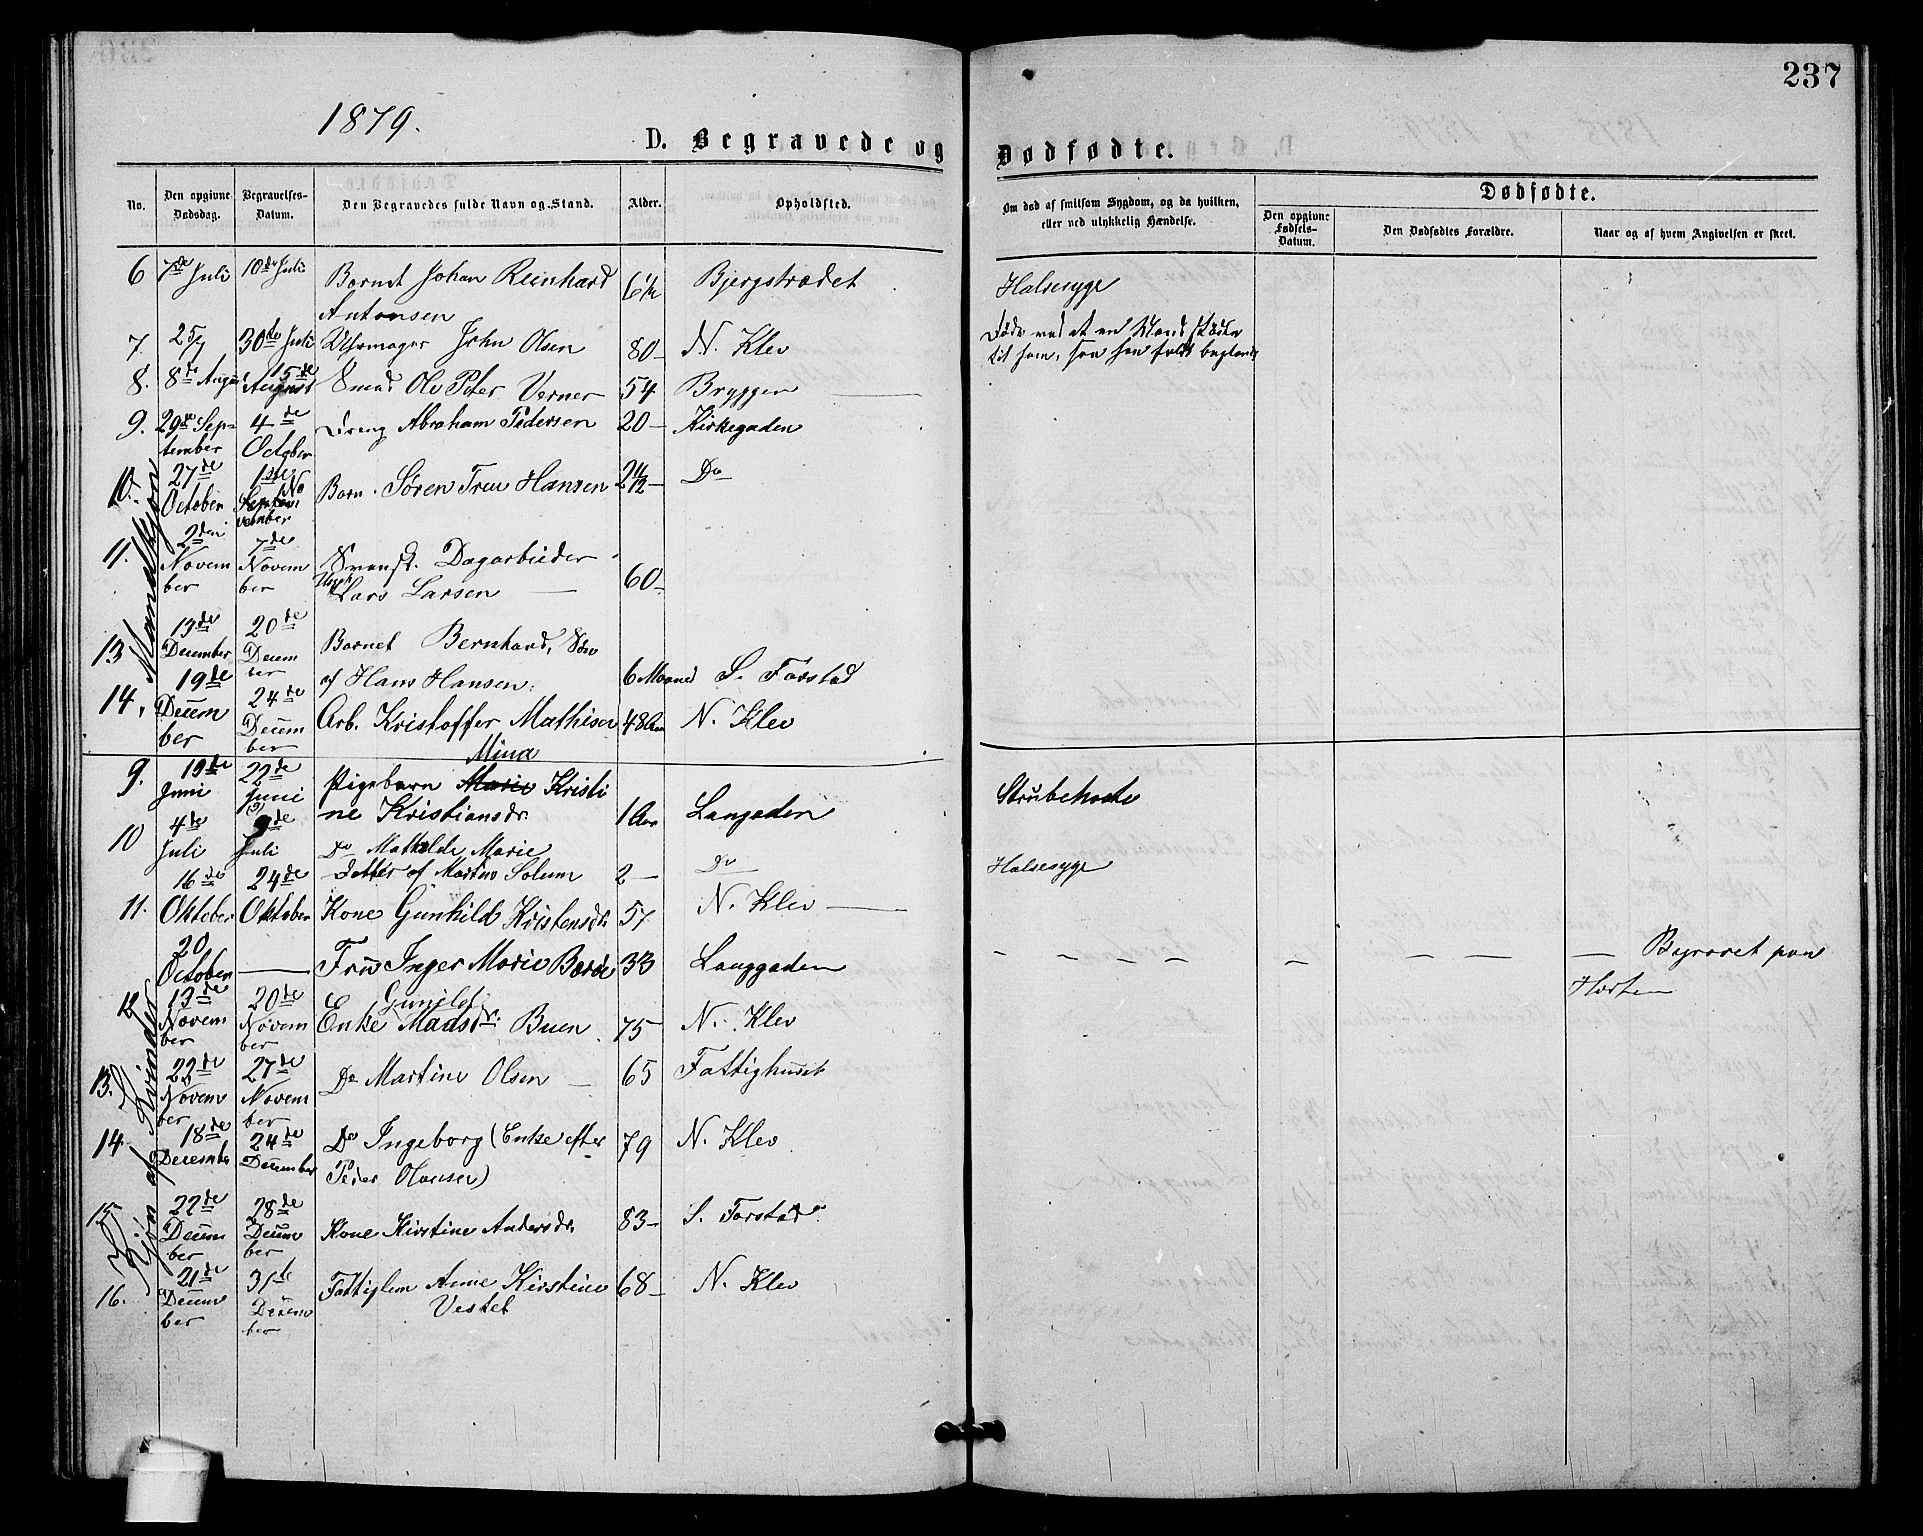 237
1879.
D. Begravede og Dødfødte.
No.
Den opgivne Dødsdag.
Begravelses-Datum.
Den Begravedes fulde Navn og Stand.
Alder.
Opholdsted.
Om død af smitsom Sygdom, og da hvilken,
eller ved ulykkelig Hændelse.
Dødfødte.
Den opgivne Fødsels-Datum.
Den Dødfødtes Forældre.
Naar og af hvem Angivelsen er skeet.
Mandkjøn
6 7de Juli 10de Juli Barnet Johan Reinhard 6 1/2 Bjergstrædet Halsesyge
Antonsen
7. 25/7 30te Juli Uhrmager John Olsen 80 — N. Klev Døde ved at en Mand stødte
til ham, saa han faldt baglends
8. 8de August 15de August Smed Ole Peter Verner 54 Bryggen —
9. 29de September 4de October Dreng Abraham Pedersen 20 — Kirkegaden
10. 27de October 1ste November Barn Søren Hansen 2 1/2 — Do
11. 2den November 7de November Svensk Dagarbeider
Lars Larsen — 60 —
13 13de December 20de December Barnet Bernhard, Søn
af Hans Hansen. 6 Maaned S. Forstad
14. 19de December 24de December Arb. Kristoffer Mathisen 48 Aar N. Klev
Kvindekjøn
9. 19de Juni 22de Juni Pigebarn Marie Mina Kristi
ne Kristiansdr 1 Aar Langgaden Strubehoste
10 4de Juli 9de Juli Do Mathilde Marie
Datter af Martin Solum 2 — Do Halsesyge
11. 16de Oktober 24de Oktober Kone Gunhild Kristensdr. 57 N. Klev —
20 October — Fru Inger Marie 33 Langgaden — — — — — — — — Begravet paa
Horten
12 13de November 20de November Enke Gunild Madsdr. Buen 75 — N. Klev
13. 22de November 27de November Do Martine Olsen — 65 Fattighuset
14 18de December 24de December Do Ingeborg (Enke efter 79 N. Klev
Peder Olausen)
15 22de December 28de December Kone Kirstine Andersdr. 83 — S. Forstad
16. 21de December 31te December Fattiglem Anne Kirstine 68 — N. Klev
Vestet